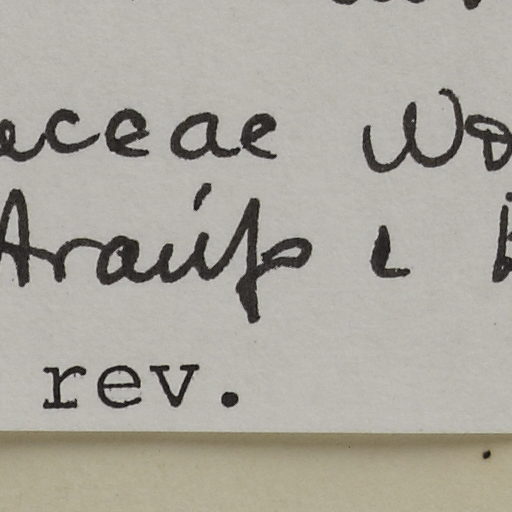 aceae Wo
Araújo &
rev.